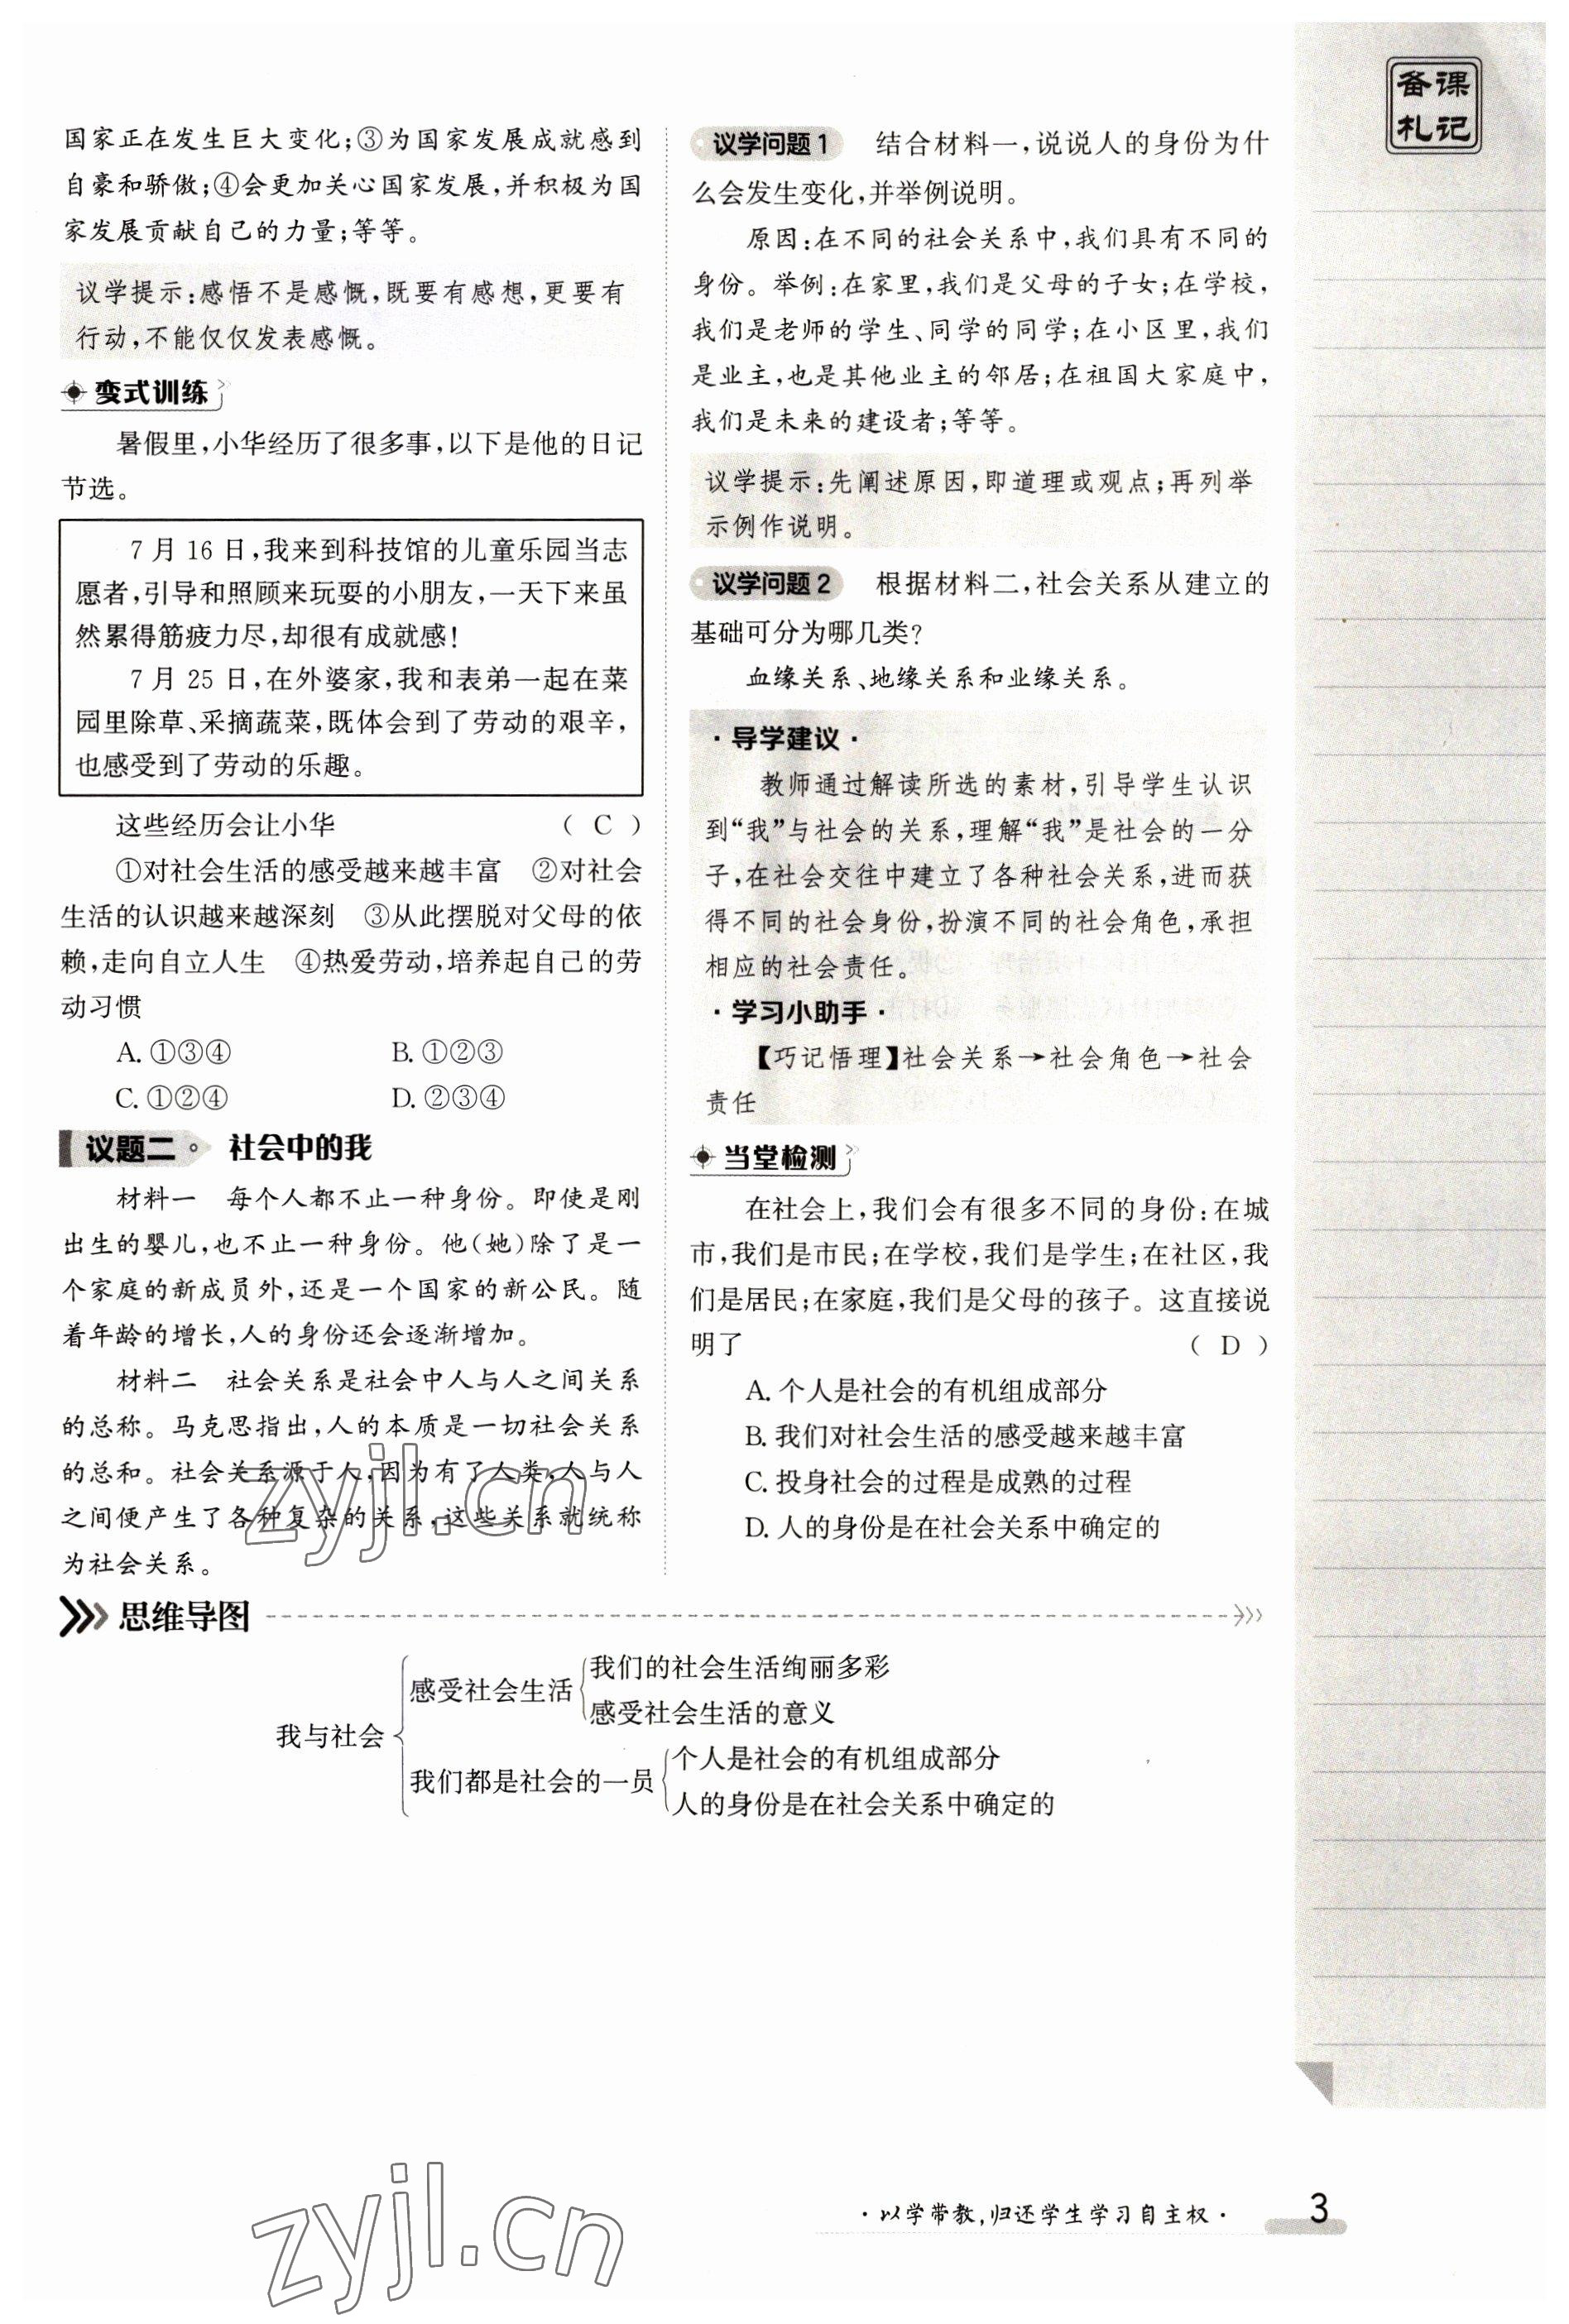 国家正在发生巨大变化;③为国家发展成就感到
自豪和骄傲;④会更加关心国家发展,并积极为国
家发展贡献自己的力量;等等。
议学提示:感悟不是感慨,既要有感想,更要有
行动,不能仅仅发表感慨。
变式训练
暑假里,小华经历了很多事,以下是他的日记
节选。
7月16日,我来到科技馆的儿童乐园当志
愿者,引导和照顾来玩耍的小朋友,一天下来虽
然累得筋疲力尽,却很有成就感!
7月25日,在外婆家,我和表弟一起在菜
园里除草、采摘蔬菜,既体会到了劳动的艰辛,
也感受到了劳动的乐趣。
这些经历会让小华 ( C )
①对社会生活的感受越来越丰富 ②对社会
生活的认识越来越深刻 ③从此摆脱对父母的依
赖,走向自立人生 ④热爱劳动,培养起自己的劳
动习惯
A. ①③④ B. ①②③
C. ①②④ D. ②③④
议题二 社会中的我
材料一 每个人都不止一种身份。即使是刚
出生的婴儿,也不止一种身份。他(她)除了是一
个家庭的新成员外,还是一个国家的新公民。随
着年龄的增长,人的身份还会逐渐增加。
材料二 社会关系是社会中人与人之间关系
的总称。马克思指出,人的本质是一切社会关系
的总和。社会关系源于人,因为有了人类,人与人
之间便产生了各种复杂的关系,这些关系就统称
为社会关系。
议学问题1 结合材料一,说说人的身份为什
么会发生变化,并举例说明。
原因:在不同的社会关系中,我们具有不同的
身份。举例:在家里,我们是父母的子女;在学校,
我们是老师的学生、同学的同学;在小区里,我们
是业主,也是其他业主的邻居;在祖国大家庭中,
我们是未来的建设者;等等。
议学提示:先阐述原因,即道理或观点;再列举
示例作说明。
议学问题2 根据材料二,社会关系从建立的
基础可分为哪几类?
血缘关系、地缘关系和业缘关系。
·导学建议·
教师通过解读所选的素材,引导学生认识
到“我”与社会的关系,理解“我”是社会的一分
子,在社会交往中建立了各种社会关系,进而获
得不同的社会身份,扮演不同的社会角色,承担
相应的社会责任。
·学习小助手·
【巧记悟理】社会关系→社会角色→社会
责任
当堂检测
在社会上,我们会有很多不同的身份:在城
市,我们是市民;在学校,我们是学生;在社区,我
们是居民;在家庭,我们是父母的孩子。这直接说
明了 ( D )
A. 个人是社会的有机组成部分
B. 我们对社会生活的感受越来越丰富
C. 投身社会的过程是成熟的过程
D. 人的身份是在社会关系中确定的
思维导图
我们的社会生活绚丽多彩
感受社会生活
感受社会生活的意义
我与社会
个人是社会的有机组成部分
我们都是社会的一员
人的身份是在社会关系中确定的
备课
札记
·以学带教,归还学生学习自主权·
3
zyjl.cn
zyjl.cn